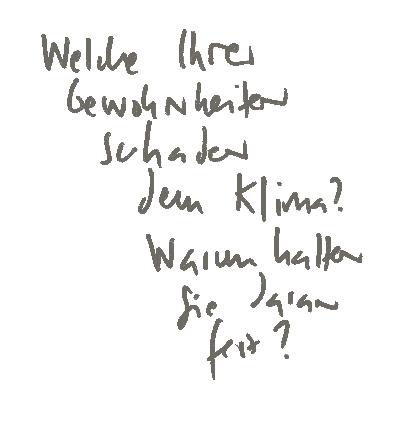 Welche Ihrer
Gewohnheiten
schaden
dem Klima?
Warum halten
Sie daran
fest?